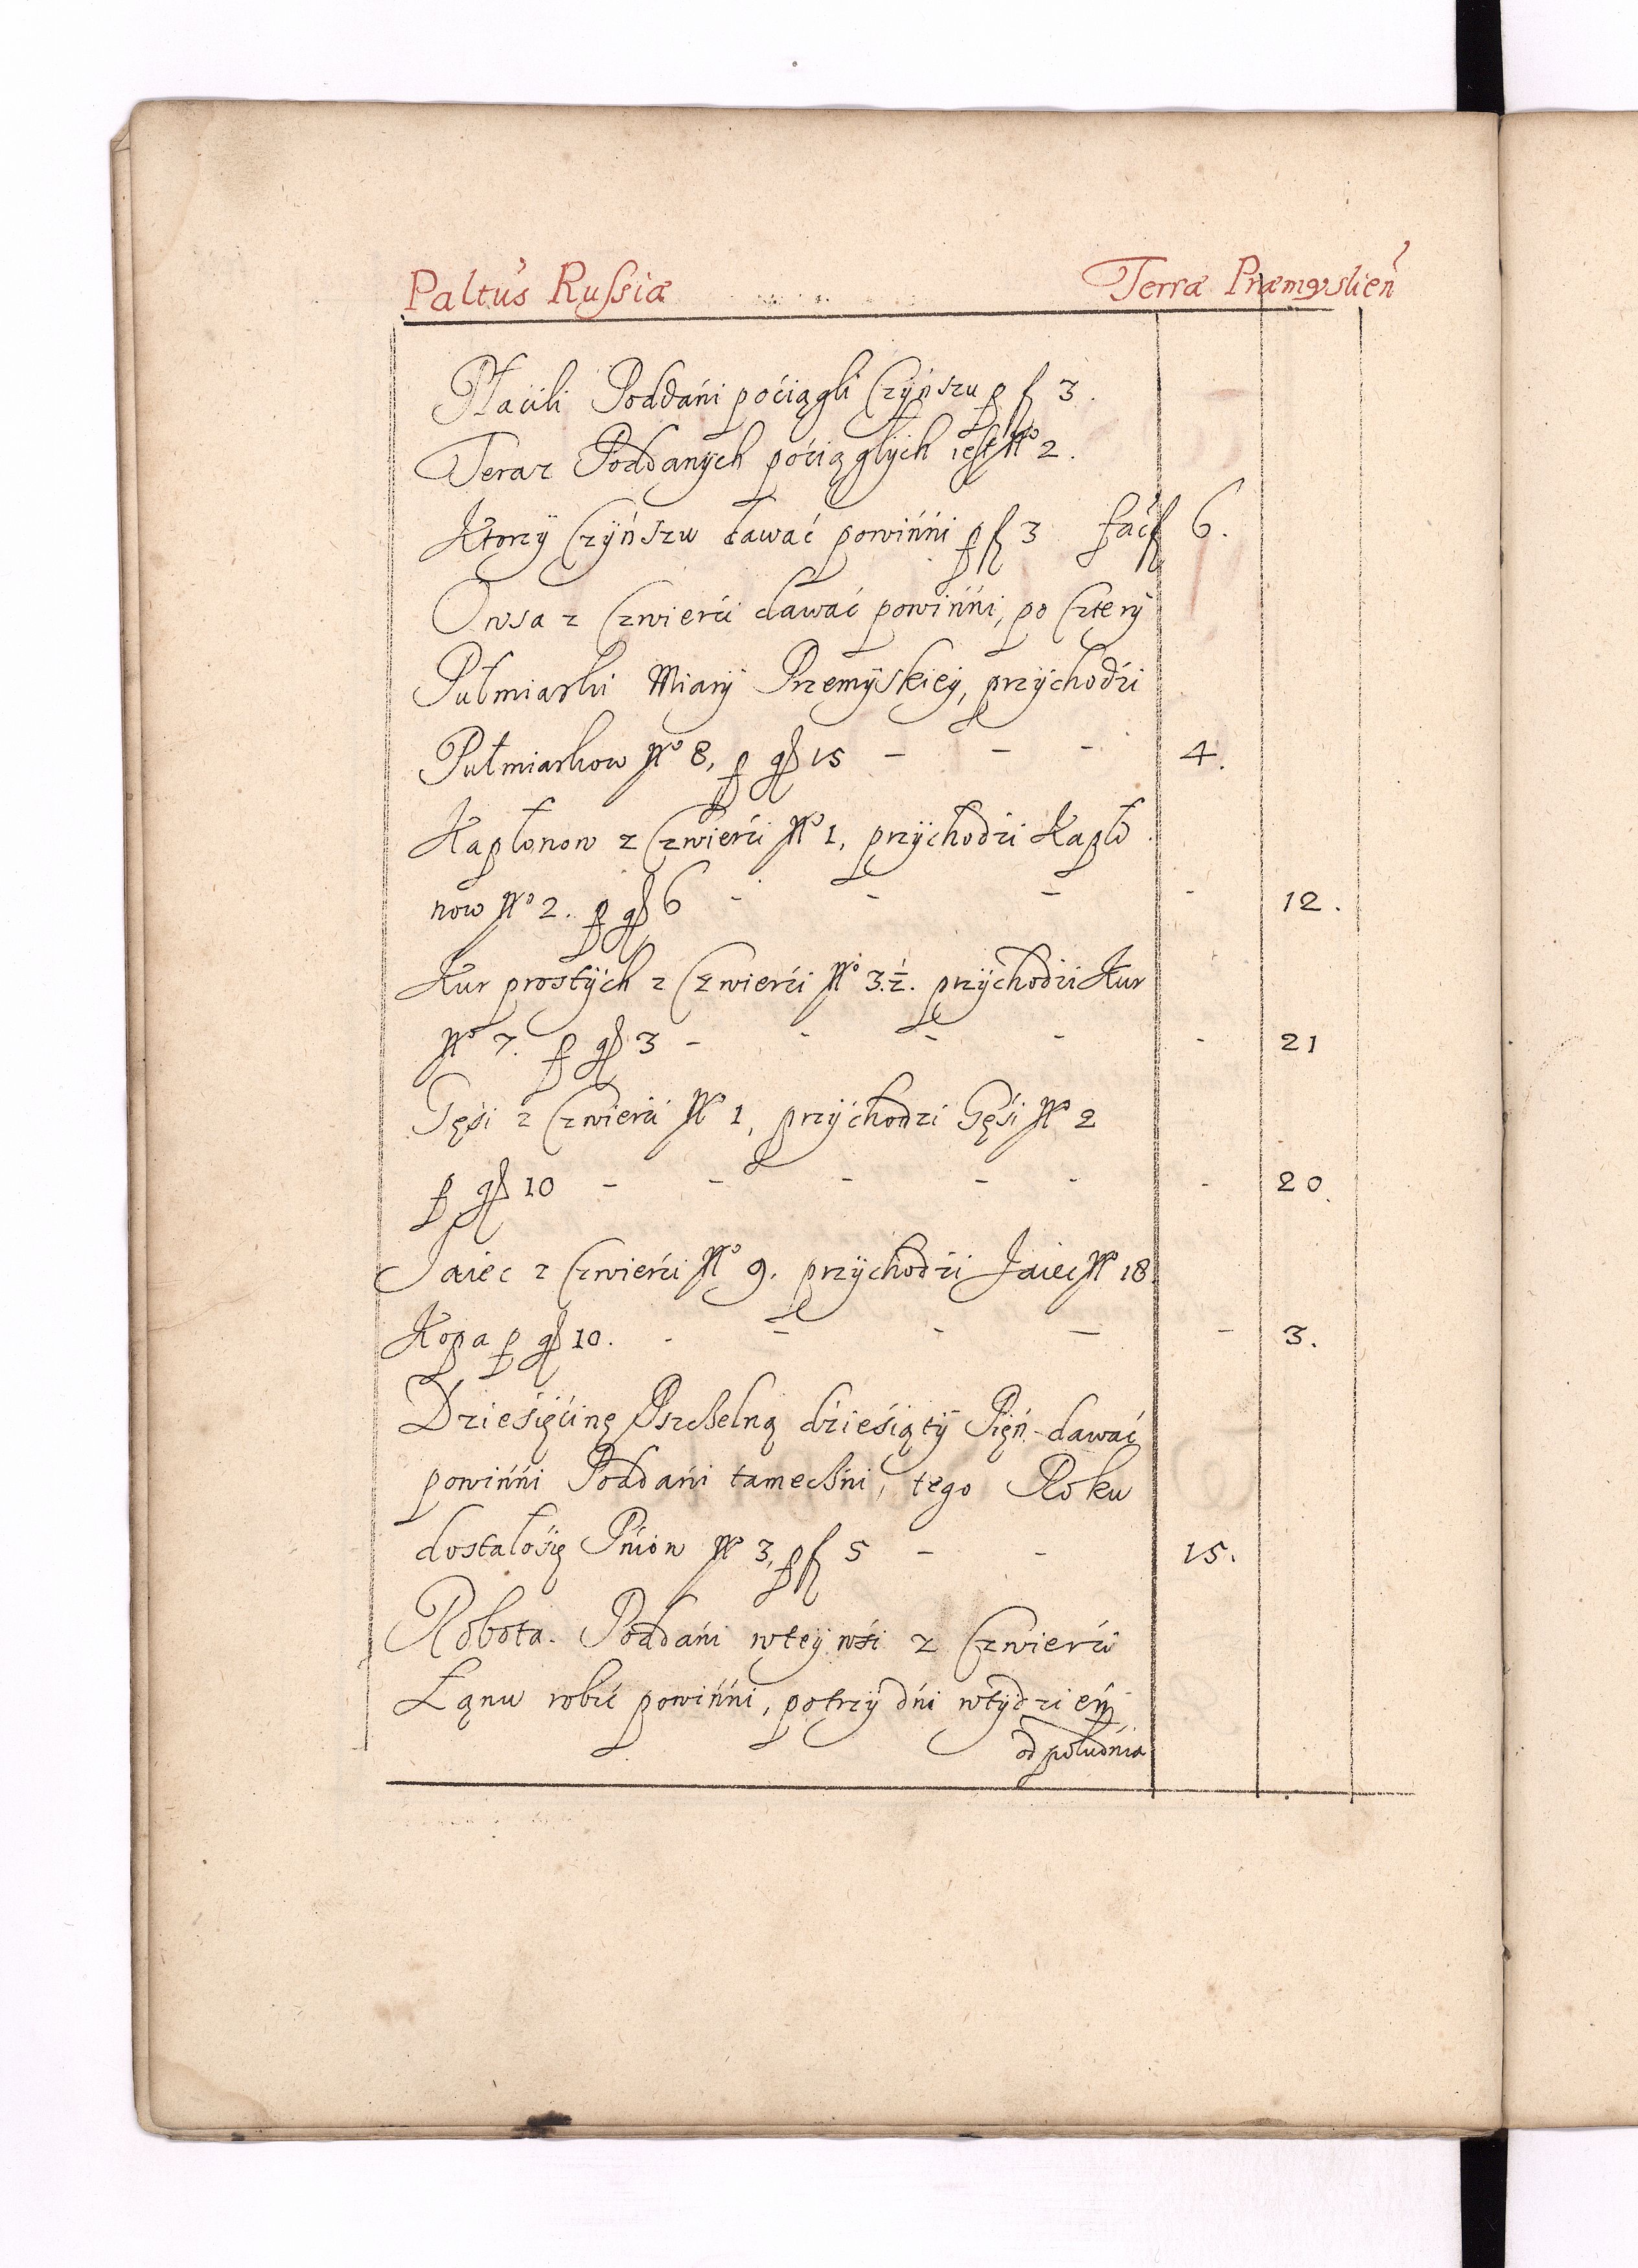 Paltus Russiæ Terræ Præmyslień
Płaćili Poddańi pociągli Czÿnszu p f 3.
Teraz Poddanÿch poćiągłÿch iest No 2.
Ktorzÿ Czÿnszu dawać powińńi p f 3 fać f 6.
Owsa z Czwierći dawać powińńi, po Czterÿ
Pułmiarki Miarÿ Przemÿskieÿ, przÿchodźi
Pułmiarkow No 8, p gl 15 - - - 4.
Kapłonow z Czwierći No 1, przÿchodźi Kapło
now No 2. p gl 6 - - - - 12.
Kur prostÿch z Czwierći No 3.½. przÿchodźi Kur
No 7. p gl 3 - - - - - 21
Gęśi z Czwierći No 1, przÿchodzi Gęśi No 2
p gl 10 - - - - - - 20.
Jaiec z Czwierći No 9. przÿchodźi Jaiec No 18.
Kopa p gl 10. - - - - - 3.
Dziesięćinę Pszczelną dźieśiątÿ Pień dawać
powińńi Poddańi tameczńi, tego Roku
dostałośię Pńiow No 3, p f 5 - - 15.
Robota. Poddańi wteÿ wśi z Czwierći
Łanu robić powińńi, potrzÿ dńi wtÿdzień
od południa